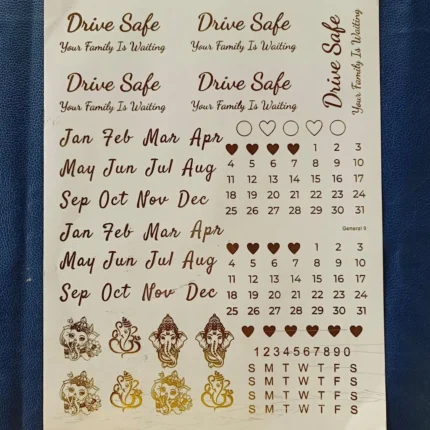 Drive Safe
Your Family Is Waiting
Drive Safe
Your Family Is Waiting
Drive Safe
Your Family Is Waiting
Drive Safe
Your Family Is Waiting
Drive Safe
Your Family Is Waiting
Jan Feb Mar Apr
May Jun Jul Aug
Sep Oct Nov Dec
1 2 3
4 5 6 7 8 9 10
11 12 13 14 15 16 17
18 19 20 21 22 23 24
25 26 27 28 29 30 31
General II
Jan Feb Mar Apr
May Jun Jul Aug
Sep Oct Nov Dec
1 2 3
4 5 6 7 8 9 10
11 12 13 14 15 16 17
18 19 20 21 22 23 24
25 26 27 28 29 30 31
1 2 3 4 5 6 7 8 9 0
S M T W T F S
S M T W T F S
S M T W T F S
S M T W T F S